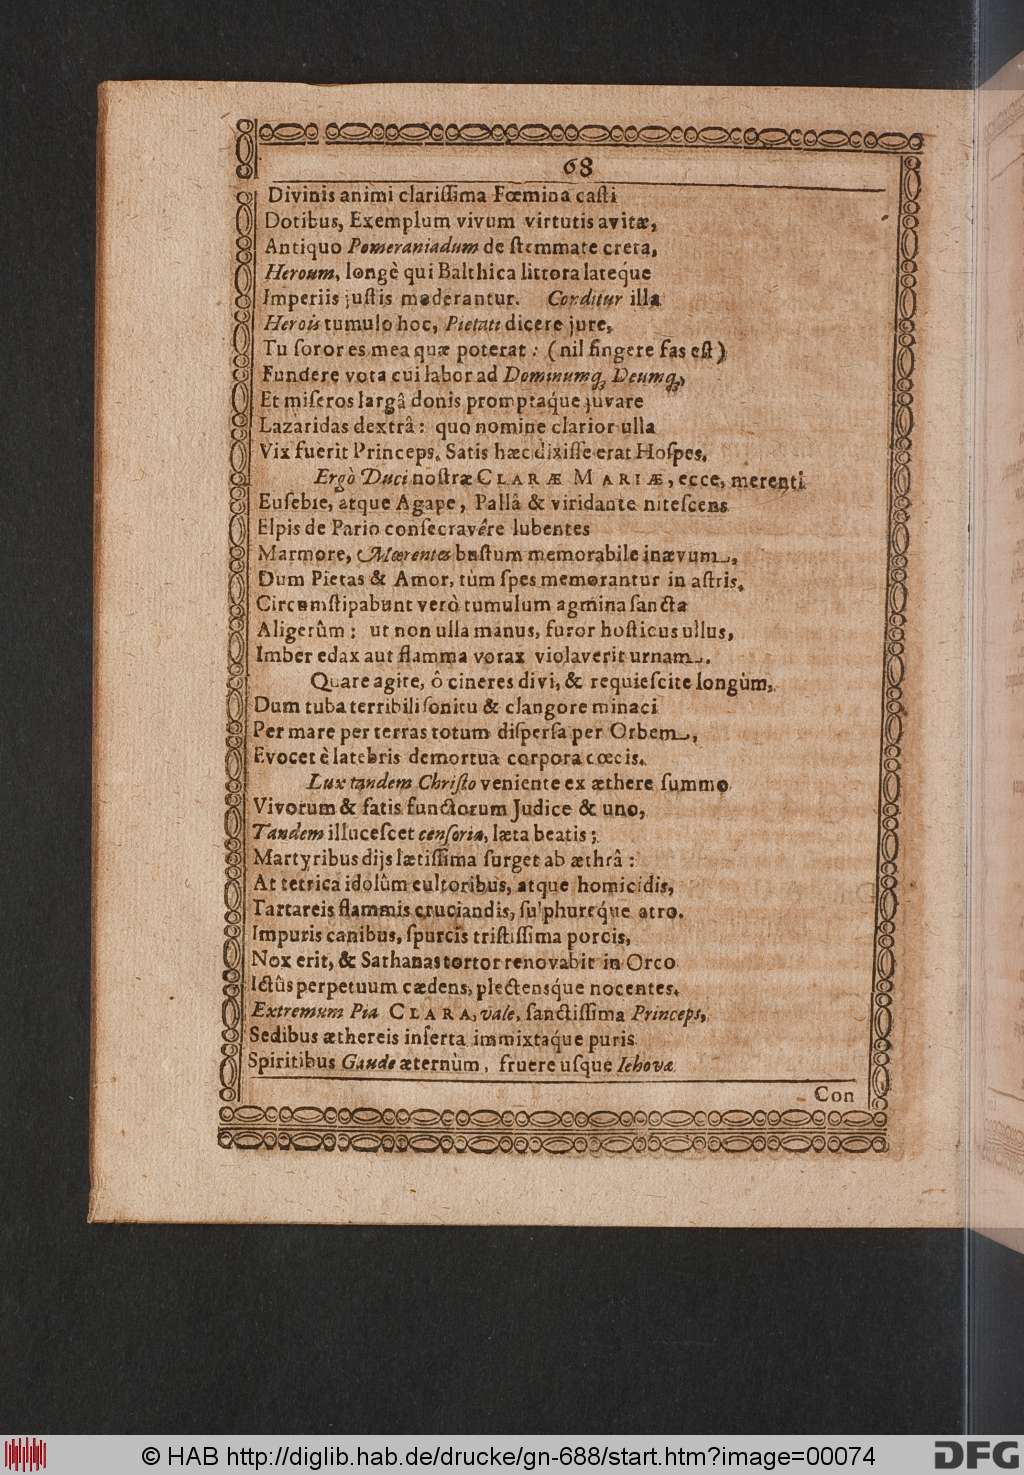 68
Divinis animi clariſſima Fœmina caſti
Dotibus, Exemplum vivum virtutis avitæ,
Antiquo Pomeraniadum de ſtemmate creta,
Heroum, longè qui Balthica littora lateq́ue
Imperiis juſtis moderantur. Conditur illa
Herois tumulo hoc, Pietati dicere jure,
Tu ſoror es mea quæ poterat: (nil fingere fas eſt)
Fundere vota cui labor ad Dominumq; Deumq;,
Et miſeros largâ donis promptaq́ue juvare
Lazaridas dextrâ: quo nomine clarior ulla
Vix fuerit Princeps. Satis hæc dixiſſe erat Hoſpes.
Ergò Duci noſtræ CLARÆ MARIÆ, ecce, merenti
Euſebie, atque Agape, Pallâ & viridante niteſcens
Elpis de Pario conſecravêre lubentes
Marmore, Mœrentes buſtum memorabile in ævum,
Dum Pietas & Amor, tùm ſpes memorantur in aſtris.
Circumſtipabunt verò tumulum agmina ſancta
Aligerûm: ut non ulla manus, furor hoſticus ullus,
Imber edax aut flamma vorax violaverit urnam.
Quare agite, ô cineres divi, & requieſcite longùm,
Dum tuba terribili ſonitu & clangore minaci
Per mare per terras totum diſperſa per Orbem,
Evocet è latebris demortua corpora cœcis.
Lux tandem Chriſto veniente ex æthere ſummo
Vivorum & fatis functorum Judice & uno,
Tandem illuceſcet cenſoria, læta beatis;
Martyribus dijs lætiſſima ſurget ab æthrâ:
At tetrica idolûm cultoribus, atque homicidis,
Tartareis flammis cruciandis, ſulphureq́ue atro.
Impuris canibus, ſpurcis triſtiſſima porcis,
Nox erit, & Sathanas tortor renovabit in Orco
Ictûs perpetuum cædens, plectensq́ue nocentes.
Extremum Pia CLARA, vale, ſanctiſſima Princeps,
Sedibus æthereis inſerta immixtaq́ue puris
Spiritibus Gaude æternùm, fruere uſque Iehovæ
Con
© HAB http://diglib.hab.de/drucke/gn-688/start.htm?image=00074
DFG